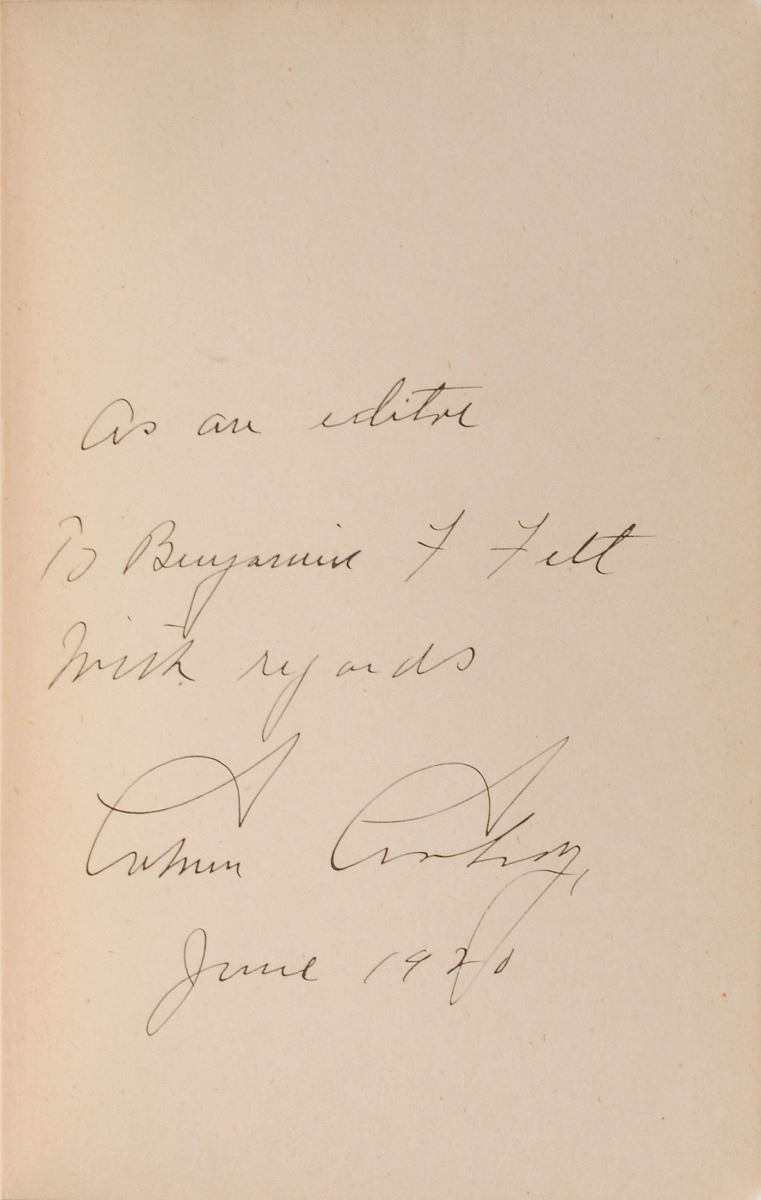 As an editor
To Benjamin F Felt
With regards
Calvin Coolidge,
June 1920